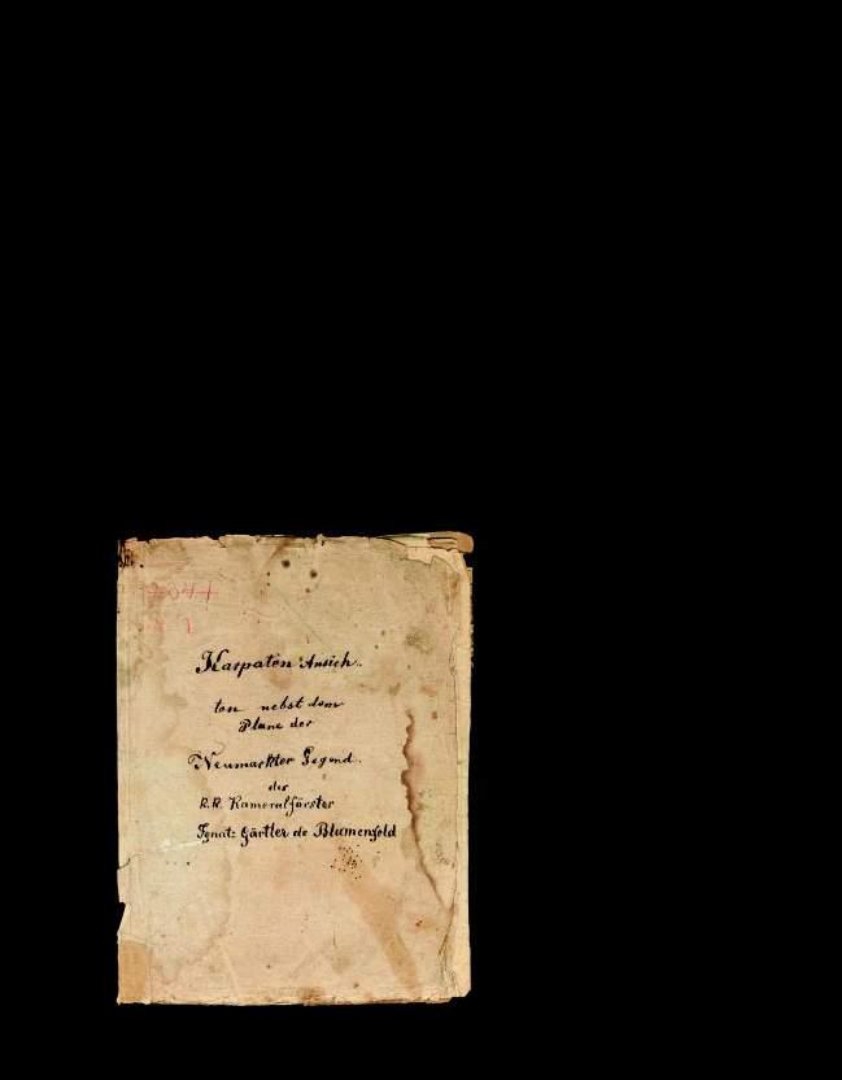 7044
1
Karpaten Ansich..
ten nebst dem
Plane der
Neumarkter Gegend.
des
K.K. Kameralförster
Ignatz Gärtler de Blumenfeld